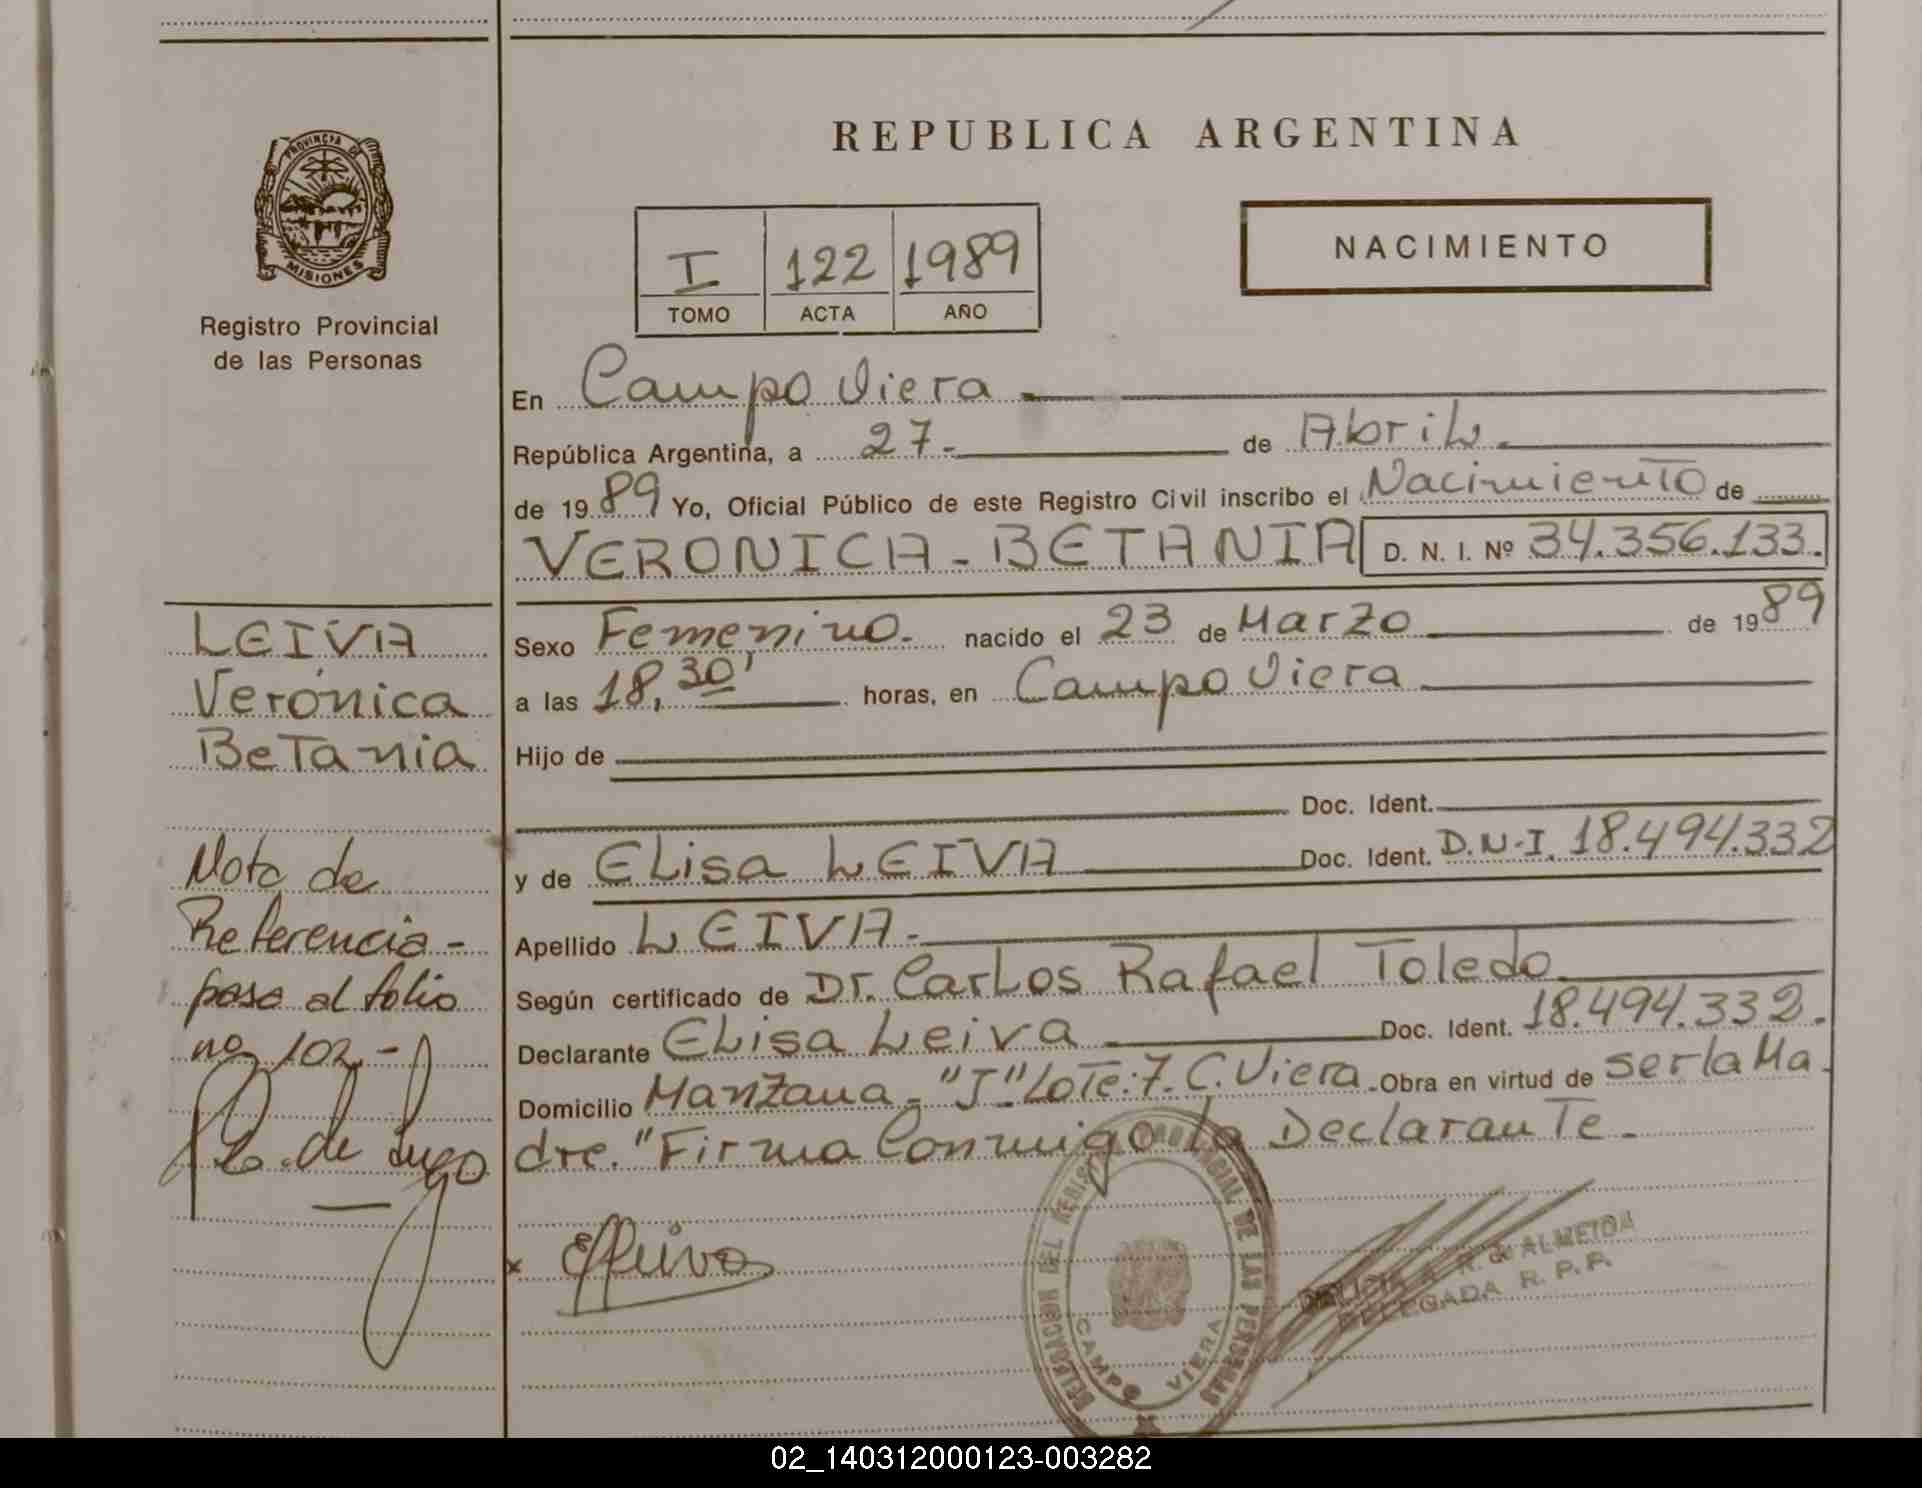 PROVINCIA DE
MISIONES
Registro Provincial
de las Personas
REPUBLICA ARGENTINA
NACIMIENTO
I 122 1989
TOMO ACTA AÑO
En Campo Viera
República Argentina, a 27- de Abril.
de 1989 Yo, Oficial Público de este Registro Civil inscribo el Nacimiento de
VERONICA - BETANIA D. N. I. Nº 34.356.133.
Sexo Femenino. nacido el 23 de Marzo de 1989
a las 18,30' horas, en Campo Viera
Hijo de
Doc. Ident.
y de Elisa LEIVA Doc. Ident. D.N.I. 18.494.332
Apellido LEIVA.
Según certificado de Dr. Carlos Rafael Toledo
Declarante Elisa Leiva Doc. Ident. 18.494.332.
Domicilio Manzana - "J" Lote: 7. C. Viera. Obra en virtud de ser la Ma
dre. "Firma Conmigo la Declarante.
LEIVA
Verónica
Betania
Nota de
Referencia -
pasa al folio
nº 102 -
de Lugo
DELEGACION DEL REGISTRO PROVINCIAL DE LAS PERSONAS
CAMPO VIERA
ALMEIDA
DELEGADA R. P. P.
02_140312000123-003282